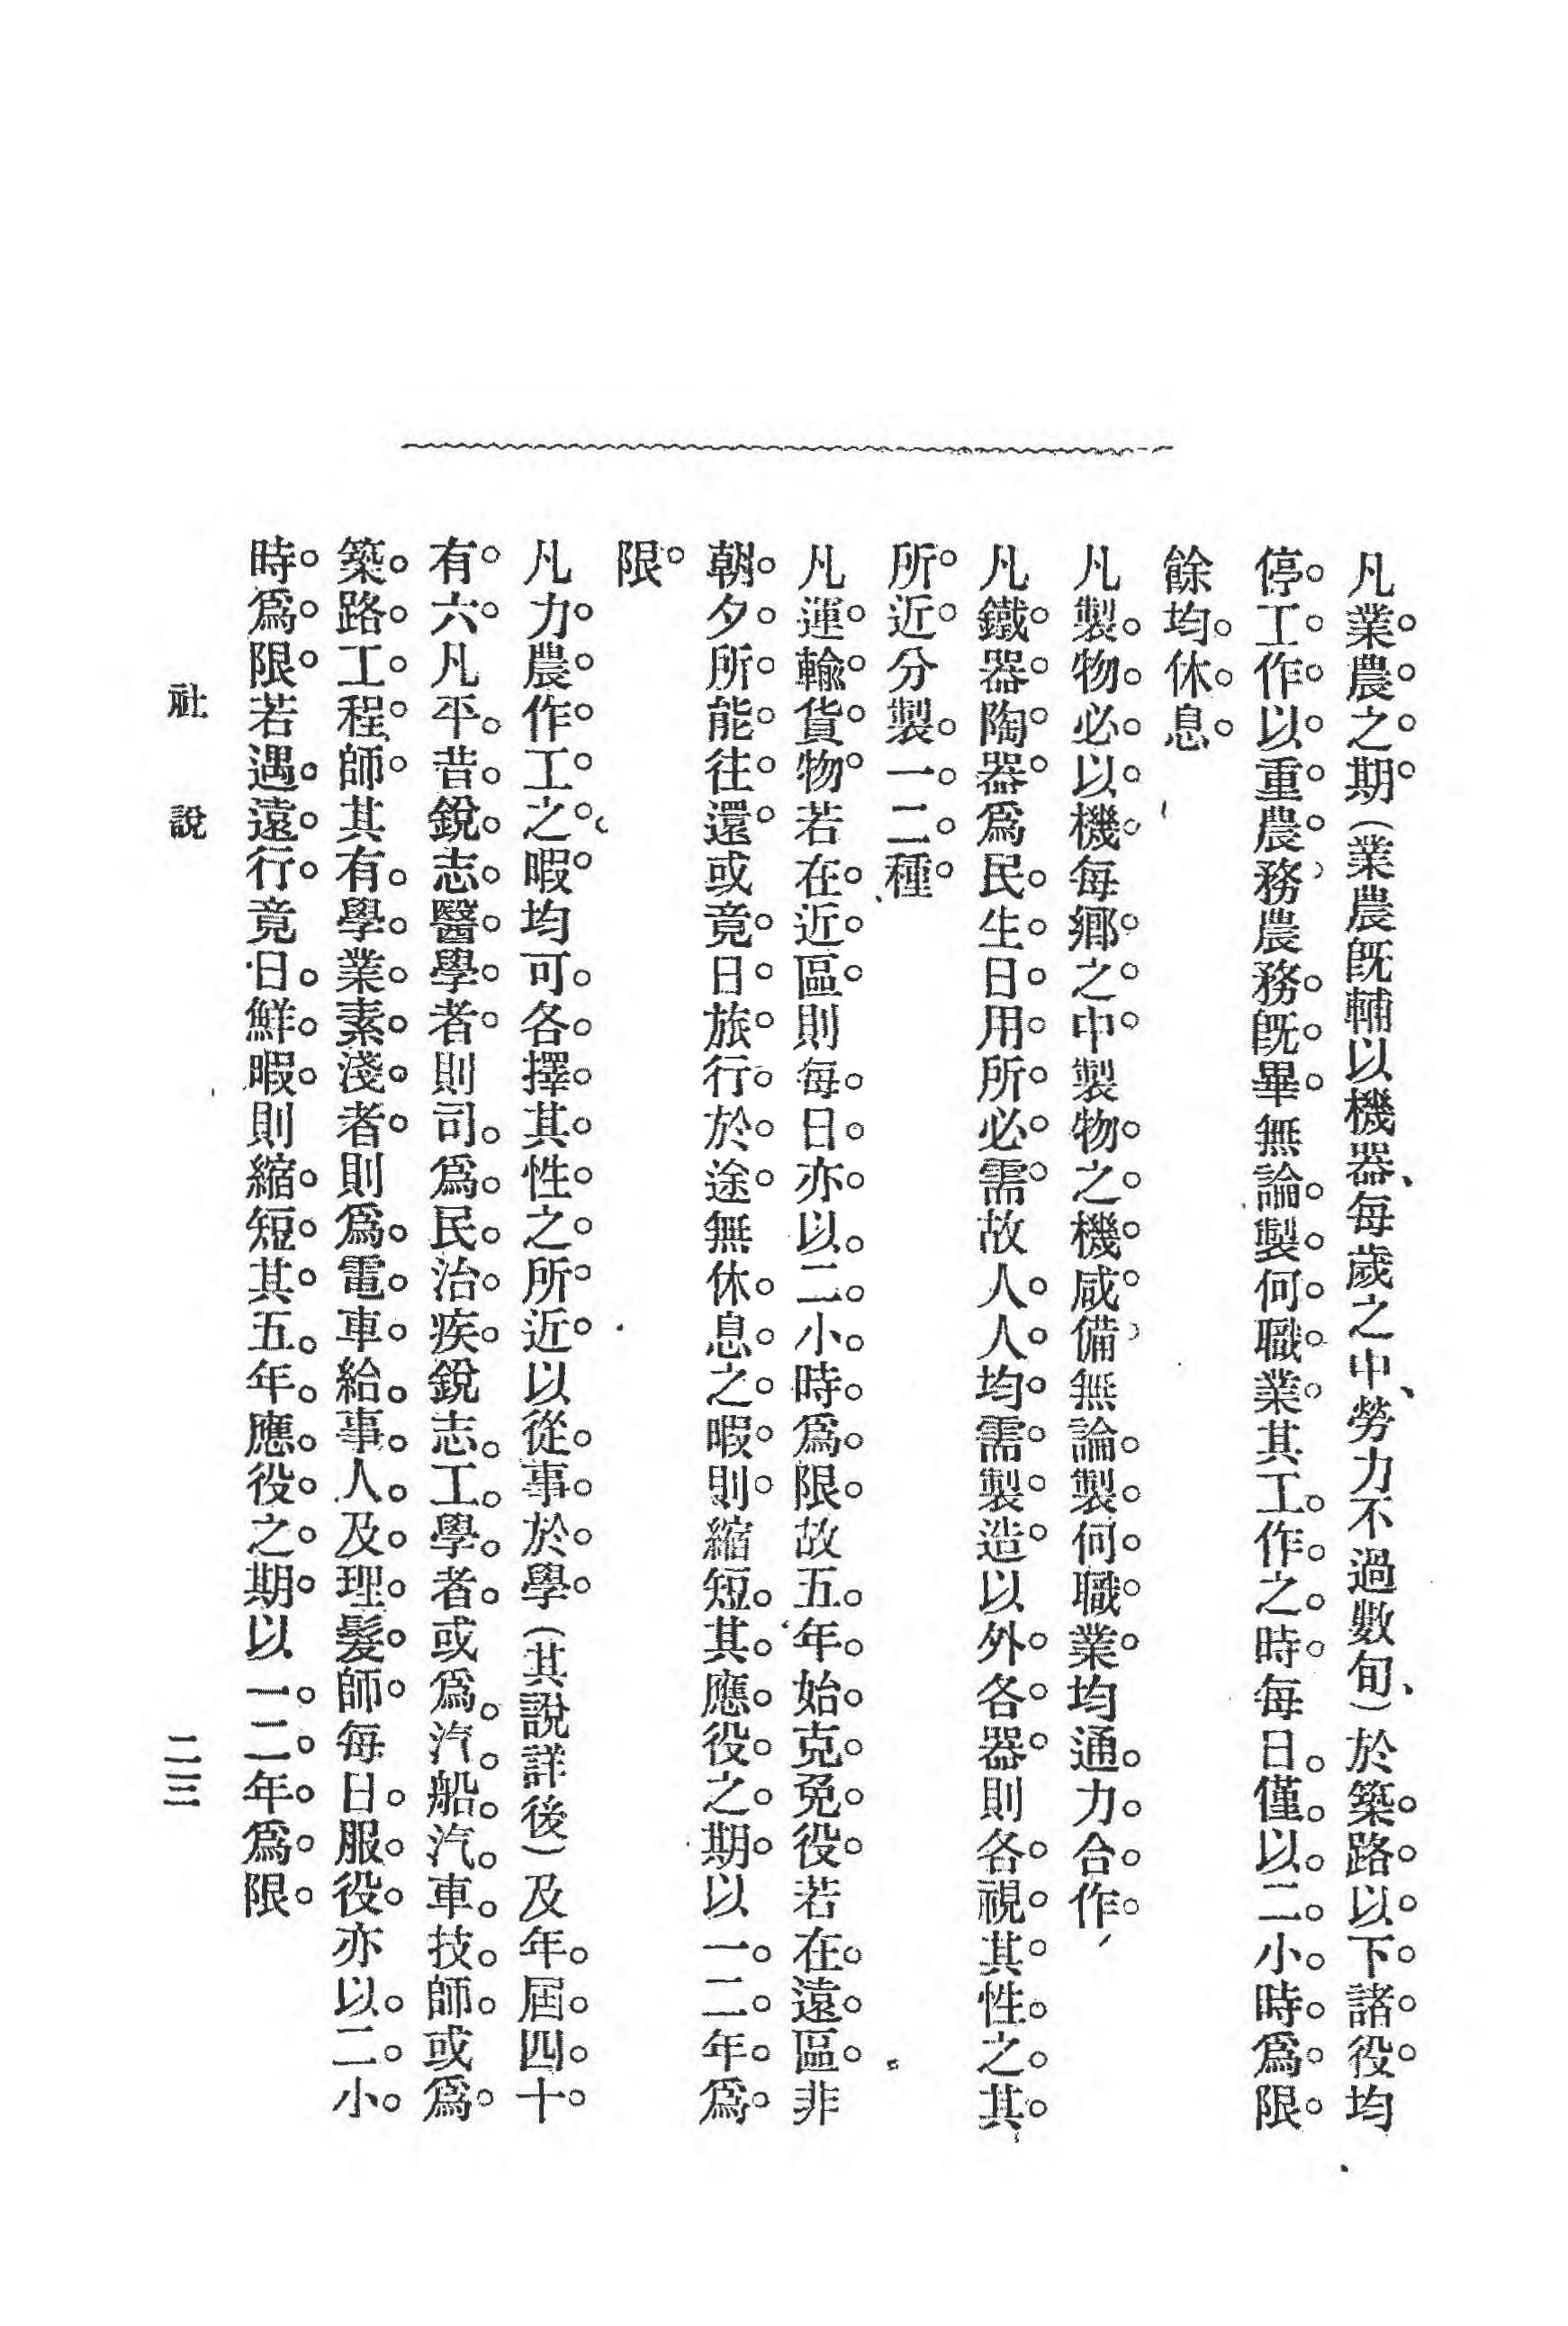 凡業農之期（業農既輔以機器每歲之中勞力不過數旬）於築路以下諸役均
停工作以重農務農務既畢無論製何職業其工作之時每日僅以二小時爲限
餘均休息
凡製物必以機每鄉之中製物之機咸備無論製何職業均通力合作
凡鐵器陶器爲民生日用所必需故人人均需製造以外各器則各視其性之其
所近分製一二種
凡運輸貨物若在近區則每日亦以二小時爲限故五年始克免役若在遠區非
朝夕所能往還或竟日旅行於途無休息之暇則縮短其應役之期以一二年爲
限
凡力農作工之暇均可各擇其性之所近以從事於學（其說詳後）及年屆四十
有六凡平昔銳志醫學者則司爲民治疾銳志工學者或爲汽船汽車技師或爲
築路工程師其有學業素淺者則爲電車給事人及理髮師每日服役亦以二小
時爲限若遇遠行竟日鮮暇則縮短其五年應役之期以一二年爲限
社說
二三